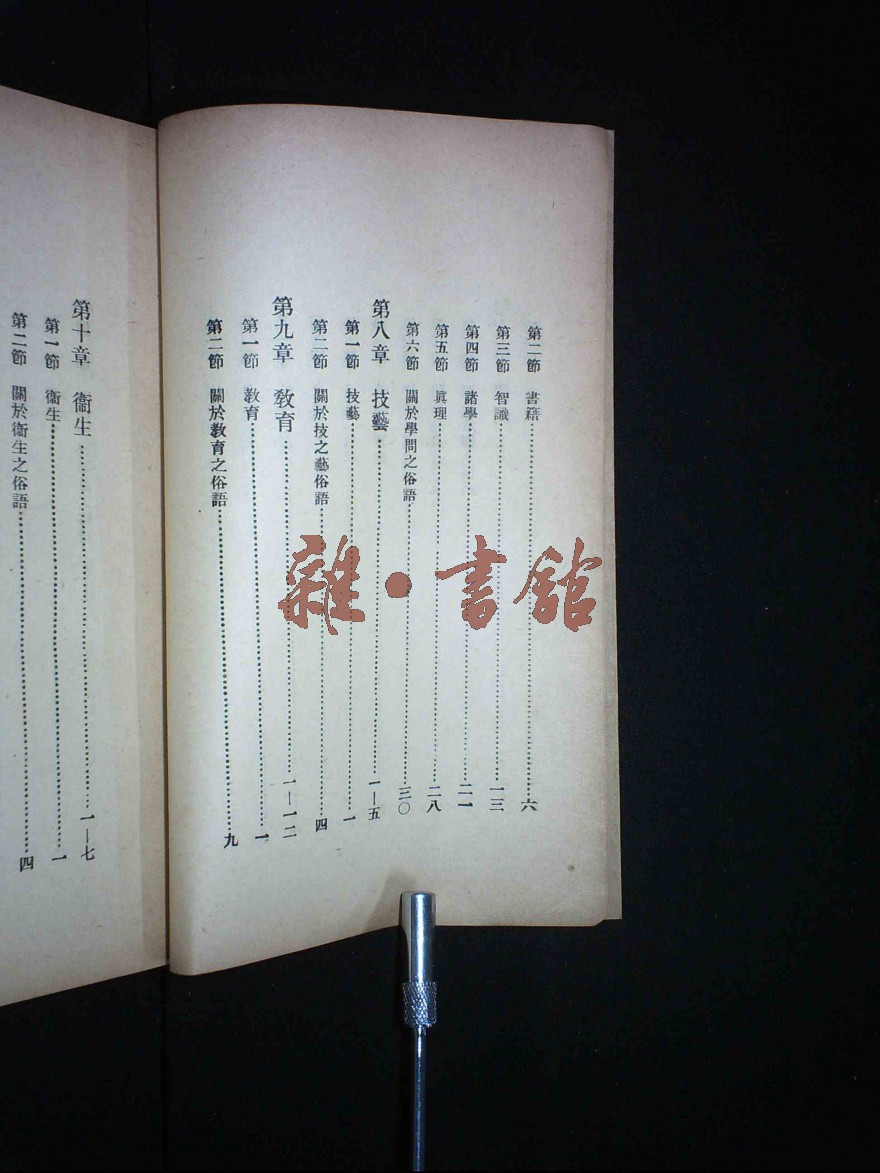 第二節 書籍 六
第三節 智識 一三
第四節 諸學 二一
第五節 眞理 二八
第六節 關於學問之俗語 三〇
第八章 技藝 一—五
第一節 技藝 一
第二節 關於技之藝俗語 四
第九章 教育 一—一二
第一節 教育 一
第二節 關於教育之俗語 九
第十章 衞生 一—七
第一節 衞生 一
第二節 關於衞生之俗語 四
雜·書館